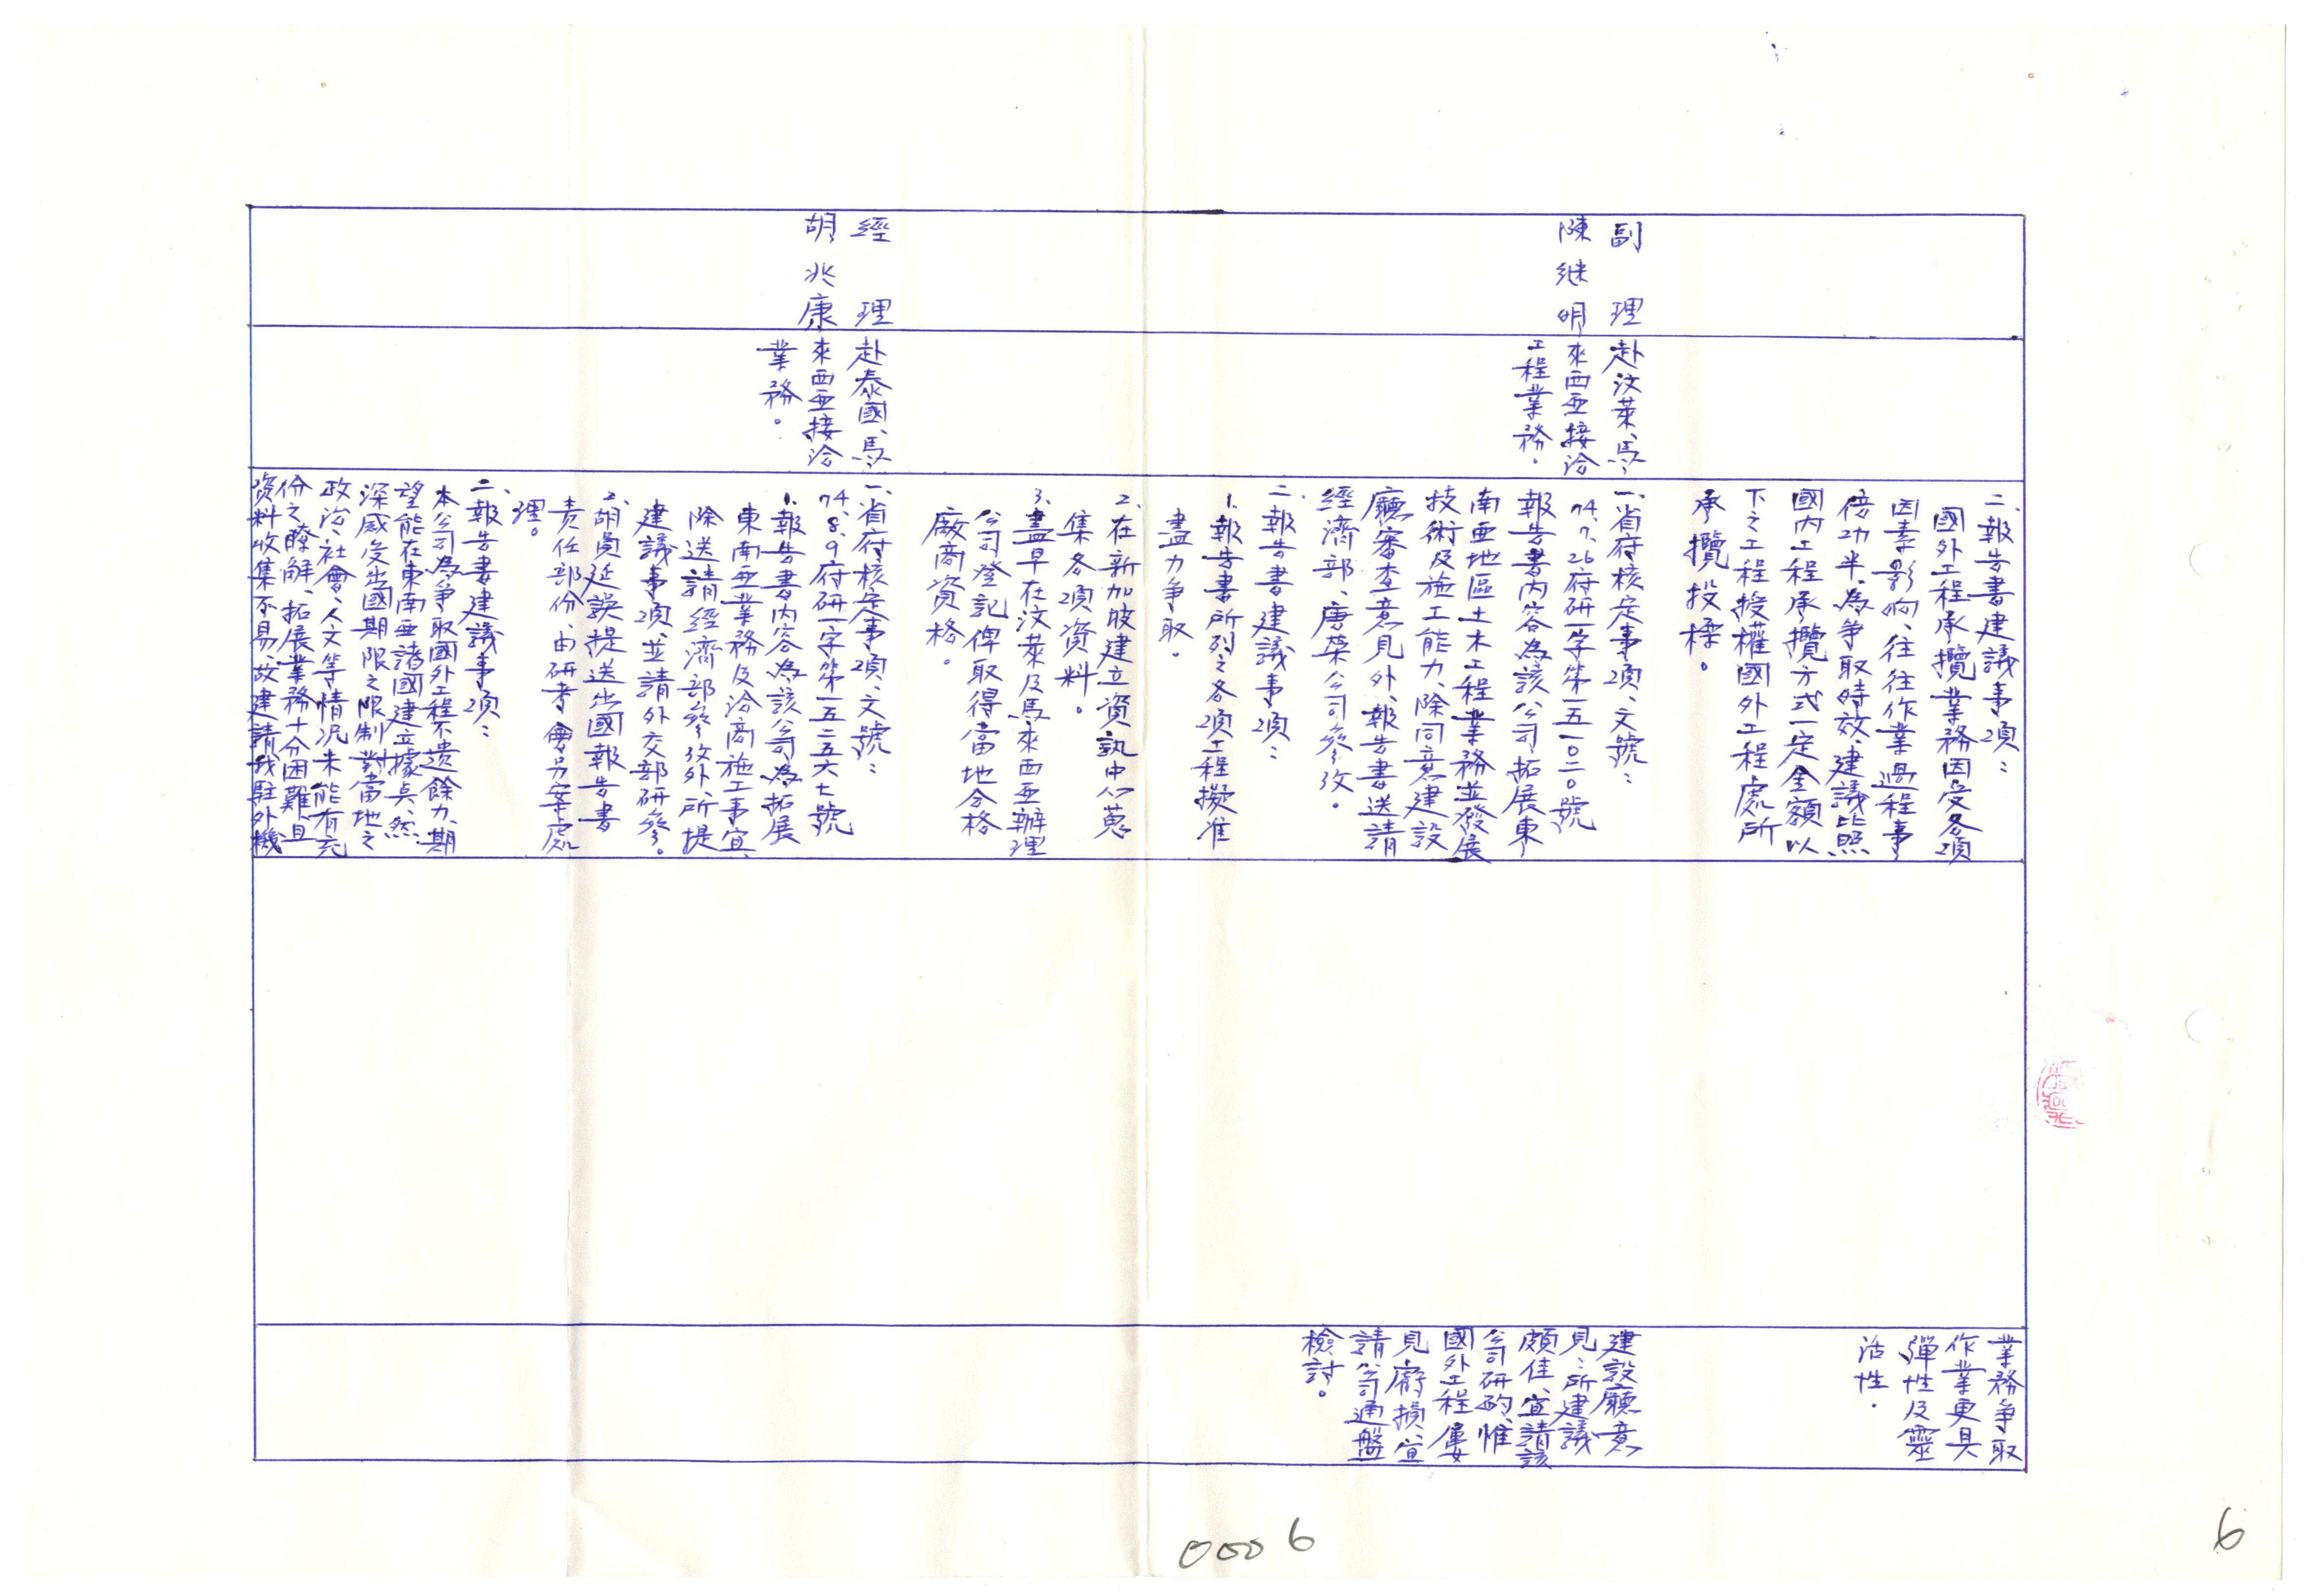 二、報告書建議事項：
國外工程承攬業務因受各項
因素影响、往往作業過程事
倍功半、為爭取時效、建議比照
國內工程承攬方式一定金額以
下之工程授權國外工程處所
承攬投標。
業務爭取
作業更具
彈性及靈
活性．
副理
陳继明
赴汶萊、馬
來西亜接洽
工程業務．
一、省府核定事項、文號：
74.7.26府研一字第一五一0二0號
報告書內容為該公司拓展東
南亜地區土木工程業務並發展
技術及施工能力、除同意建設
廳審查意見外、報告書送請
經濟部、唐榮公司參攷。
二、報告書建議事項：
1.報告書所列之各項工程擬准
盡力爭取．
2.在新加坡建立資訊中心蒐
集各項資料。
3.盡早在汶萊及馬來西亜辦理
公司登記俾取得當地合格
廠商資格．
建設廳意
見：所建議
頗佳、宜請該
公司研酌、惟
國外工程屢
見虧損、宜
請公司通盤
檢討。
經理
胡兆康
赴泰國、馬
來西亜接洽
業務。
一、省府核定事項、文號：
74.8.9府研一字第一五二五六七號
1.報告書內容為該公司為拓展
東南亜業務及洽商施工事宜、
除送請經濟部參攷外、所提
建議事項、並請外交部研參。
2.胡員延誤提送出國報告書
責任部份、由研考會另案處
理。
二、報告書建議事項：
本公司為爭取國外工程不遺餘力、期
望能在東南亜諸國建立據点、然
深感受出國期限之限制對當地之
政治、社會、人文等情況未能有充
份之瞭解、拓展業務十分困難且
資料收集不易、故建請我駐外機
0006
6